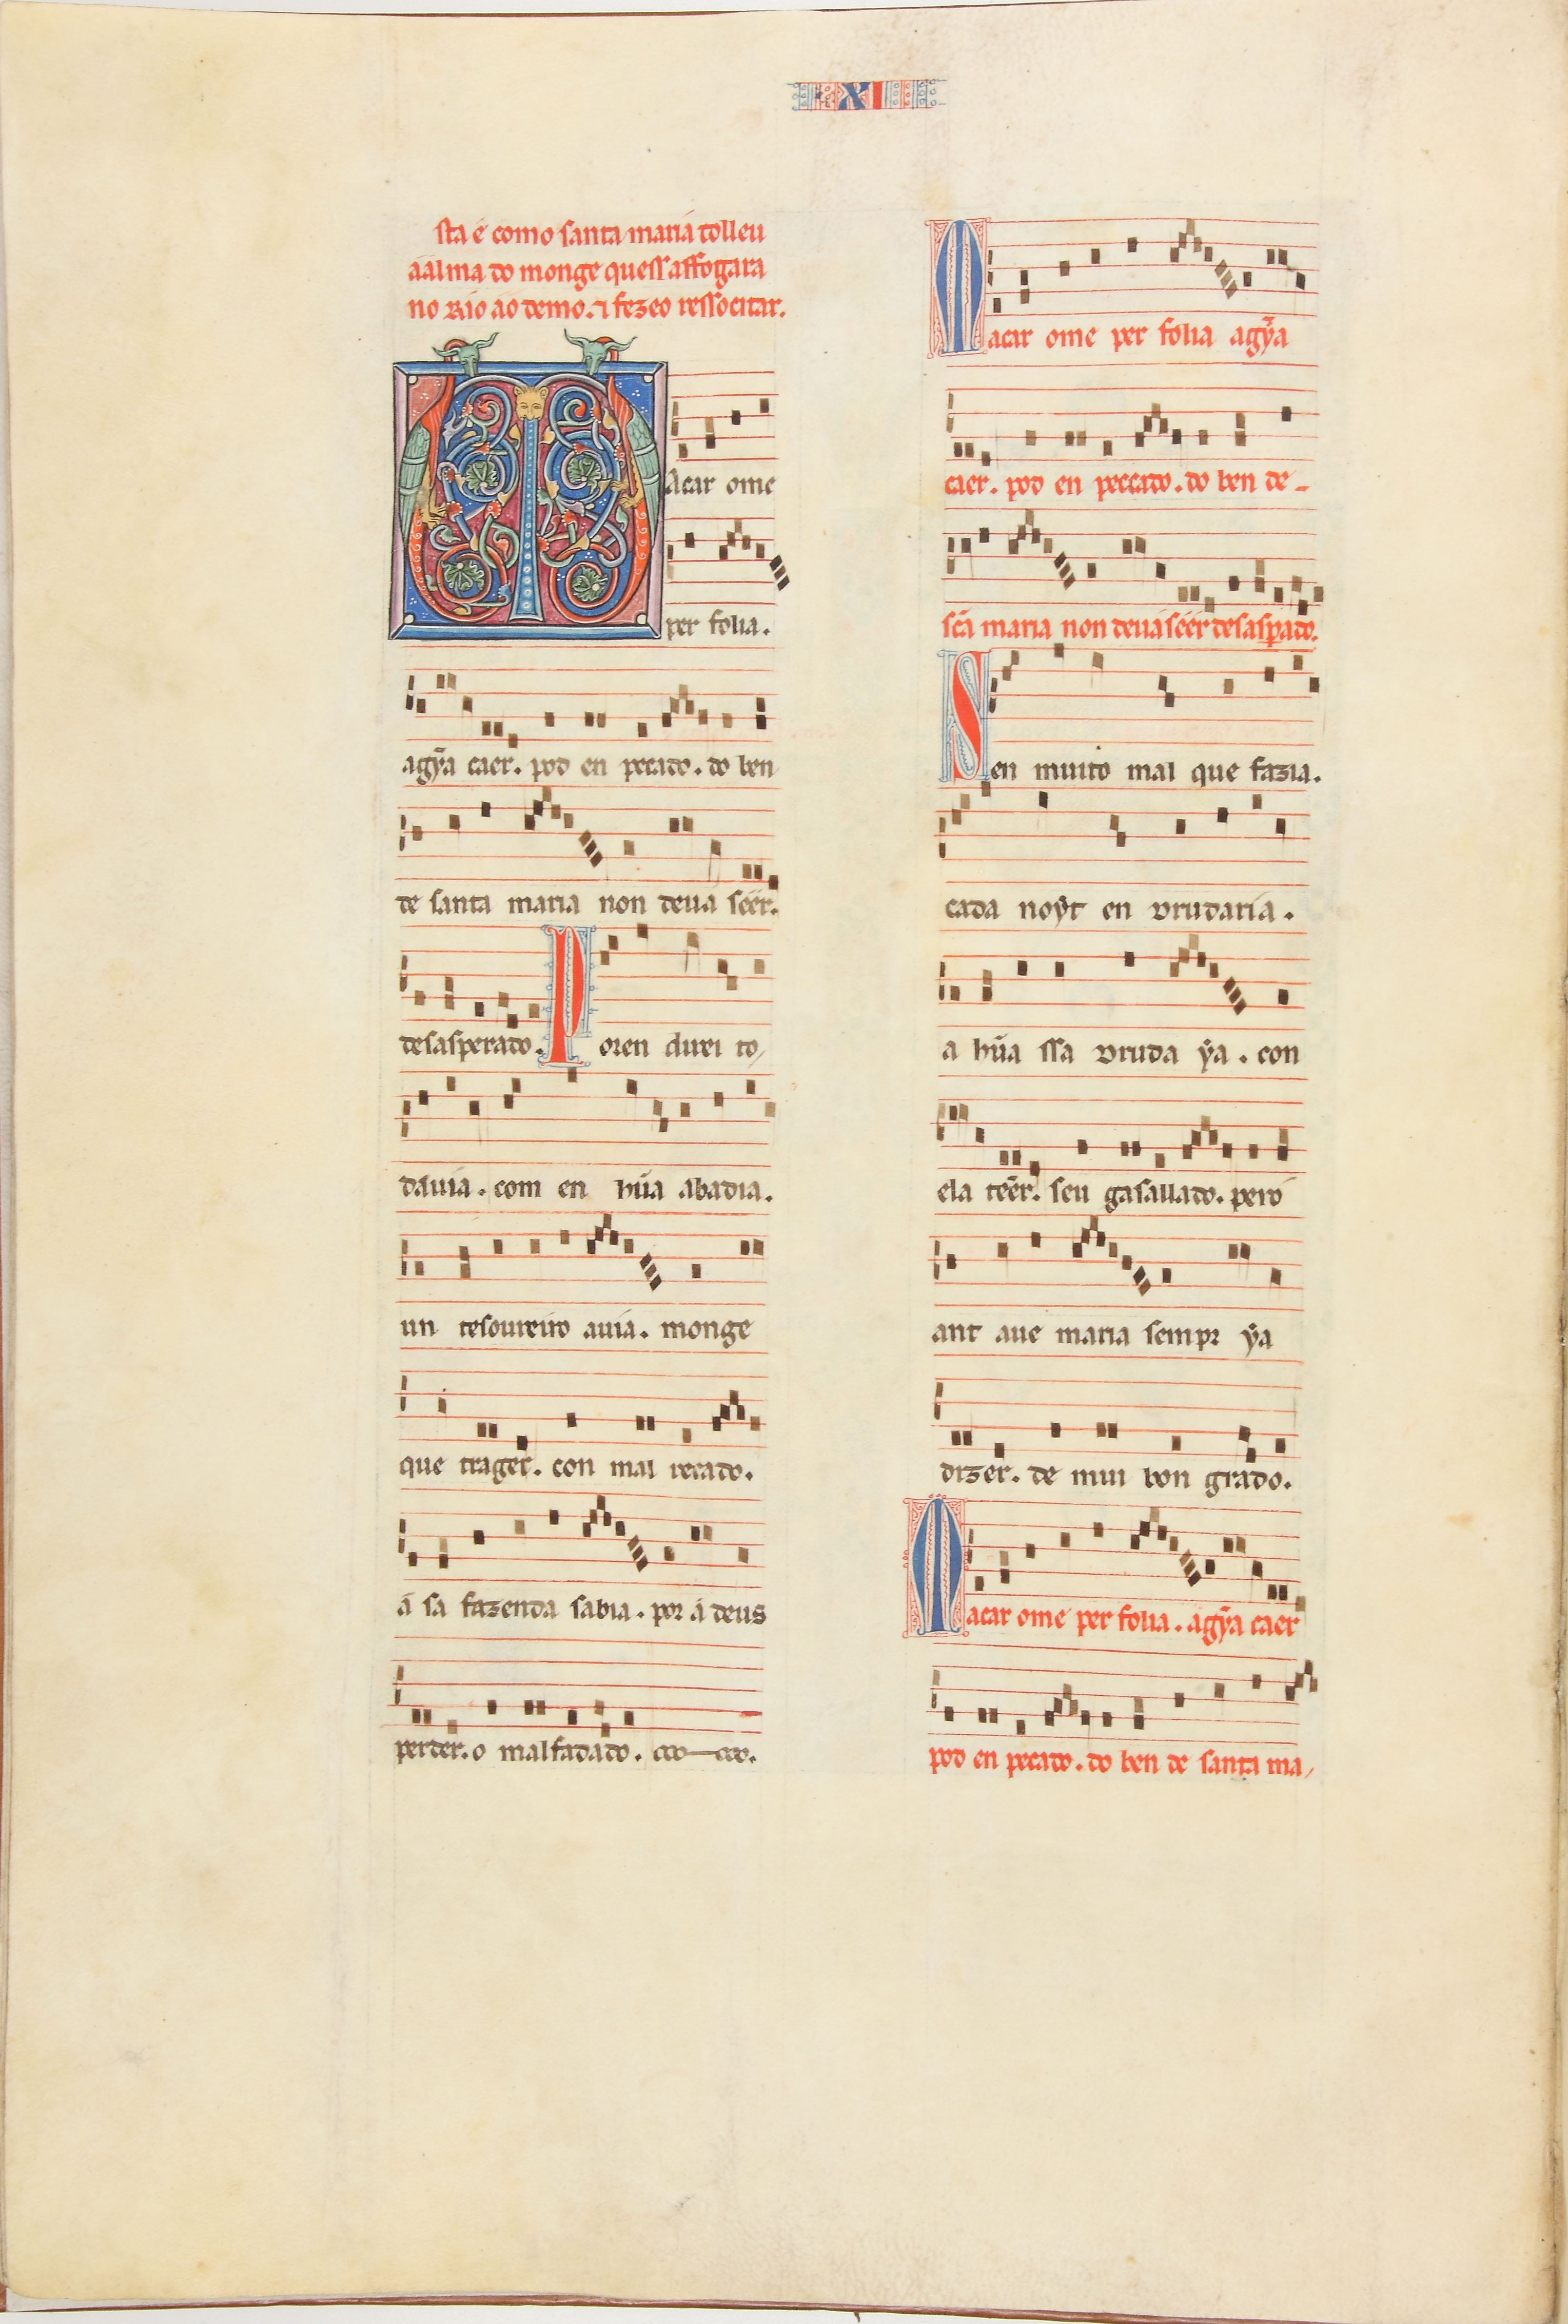 XI
sta é como santa maria tolleu
aalma do monge quess affogara
no Rio ao demo. ⁊ fezeo ressocitar.
MAcar ome
per folia.
agỹa caer. pod en pecado. do ben
de santa maria non deuá séér.
desasperado. Poren direi to/
dauia. com en hũa abadia.
un tesoureiro auia. monge
que trager. con mal recado.
á sa fazenda sabia. por á deus
perder. o malfadado.
Macar ome per folia agỹa
caer. pod en peccado. do ben de-
sc̃a maria non deuá séér desasp̃ado.
Sen muito mal que fazia.
cada noyt en drudaria.
a hũa ssa druda ya. con
ela tẽer. seu gasallado. peró
ant aue maria sempr ya
dizer. de mui bon grado.
Macar ome per folia. agỹa caer
pod en pecado. do ben de santa ma/